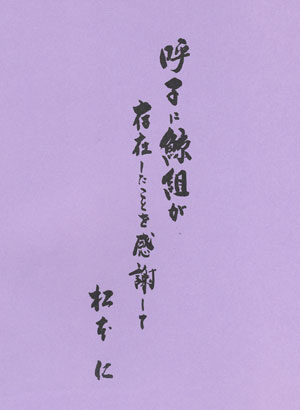 呼子に鯨組が
存在したことを感謝して
松本 仁